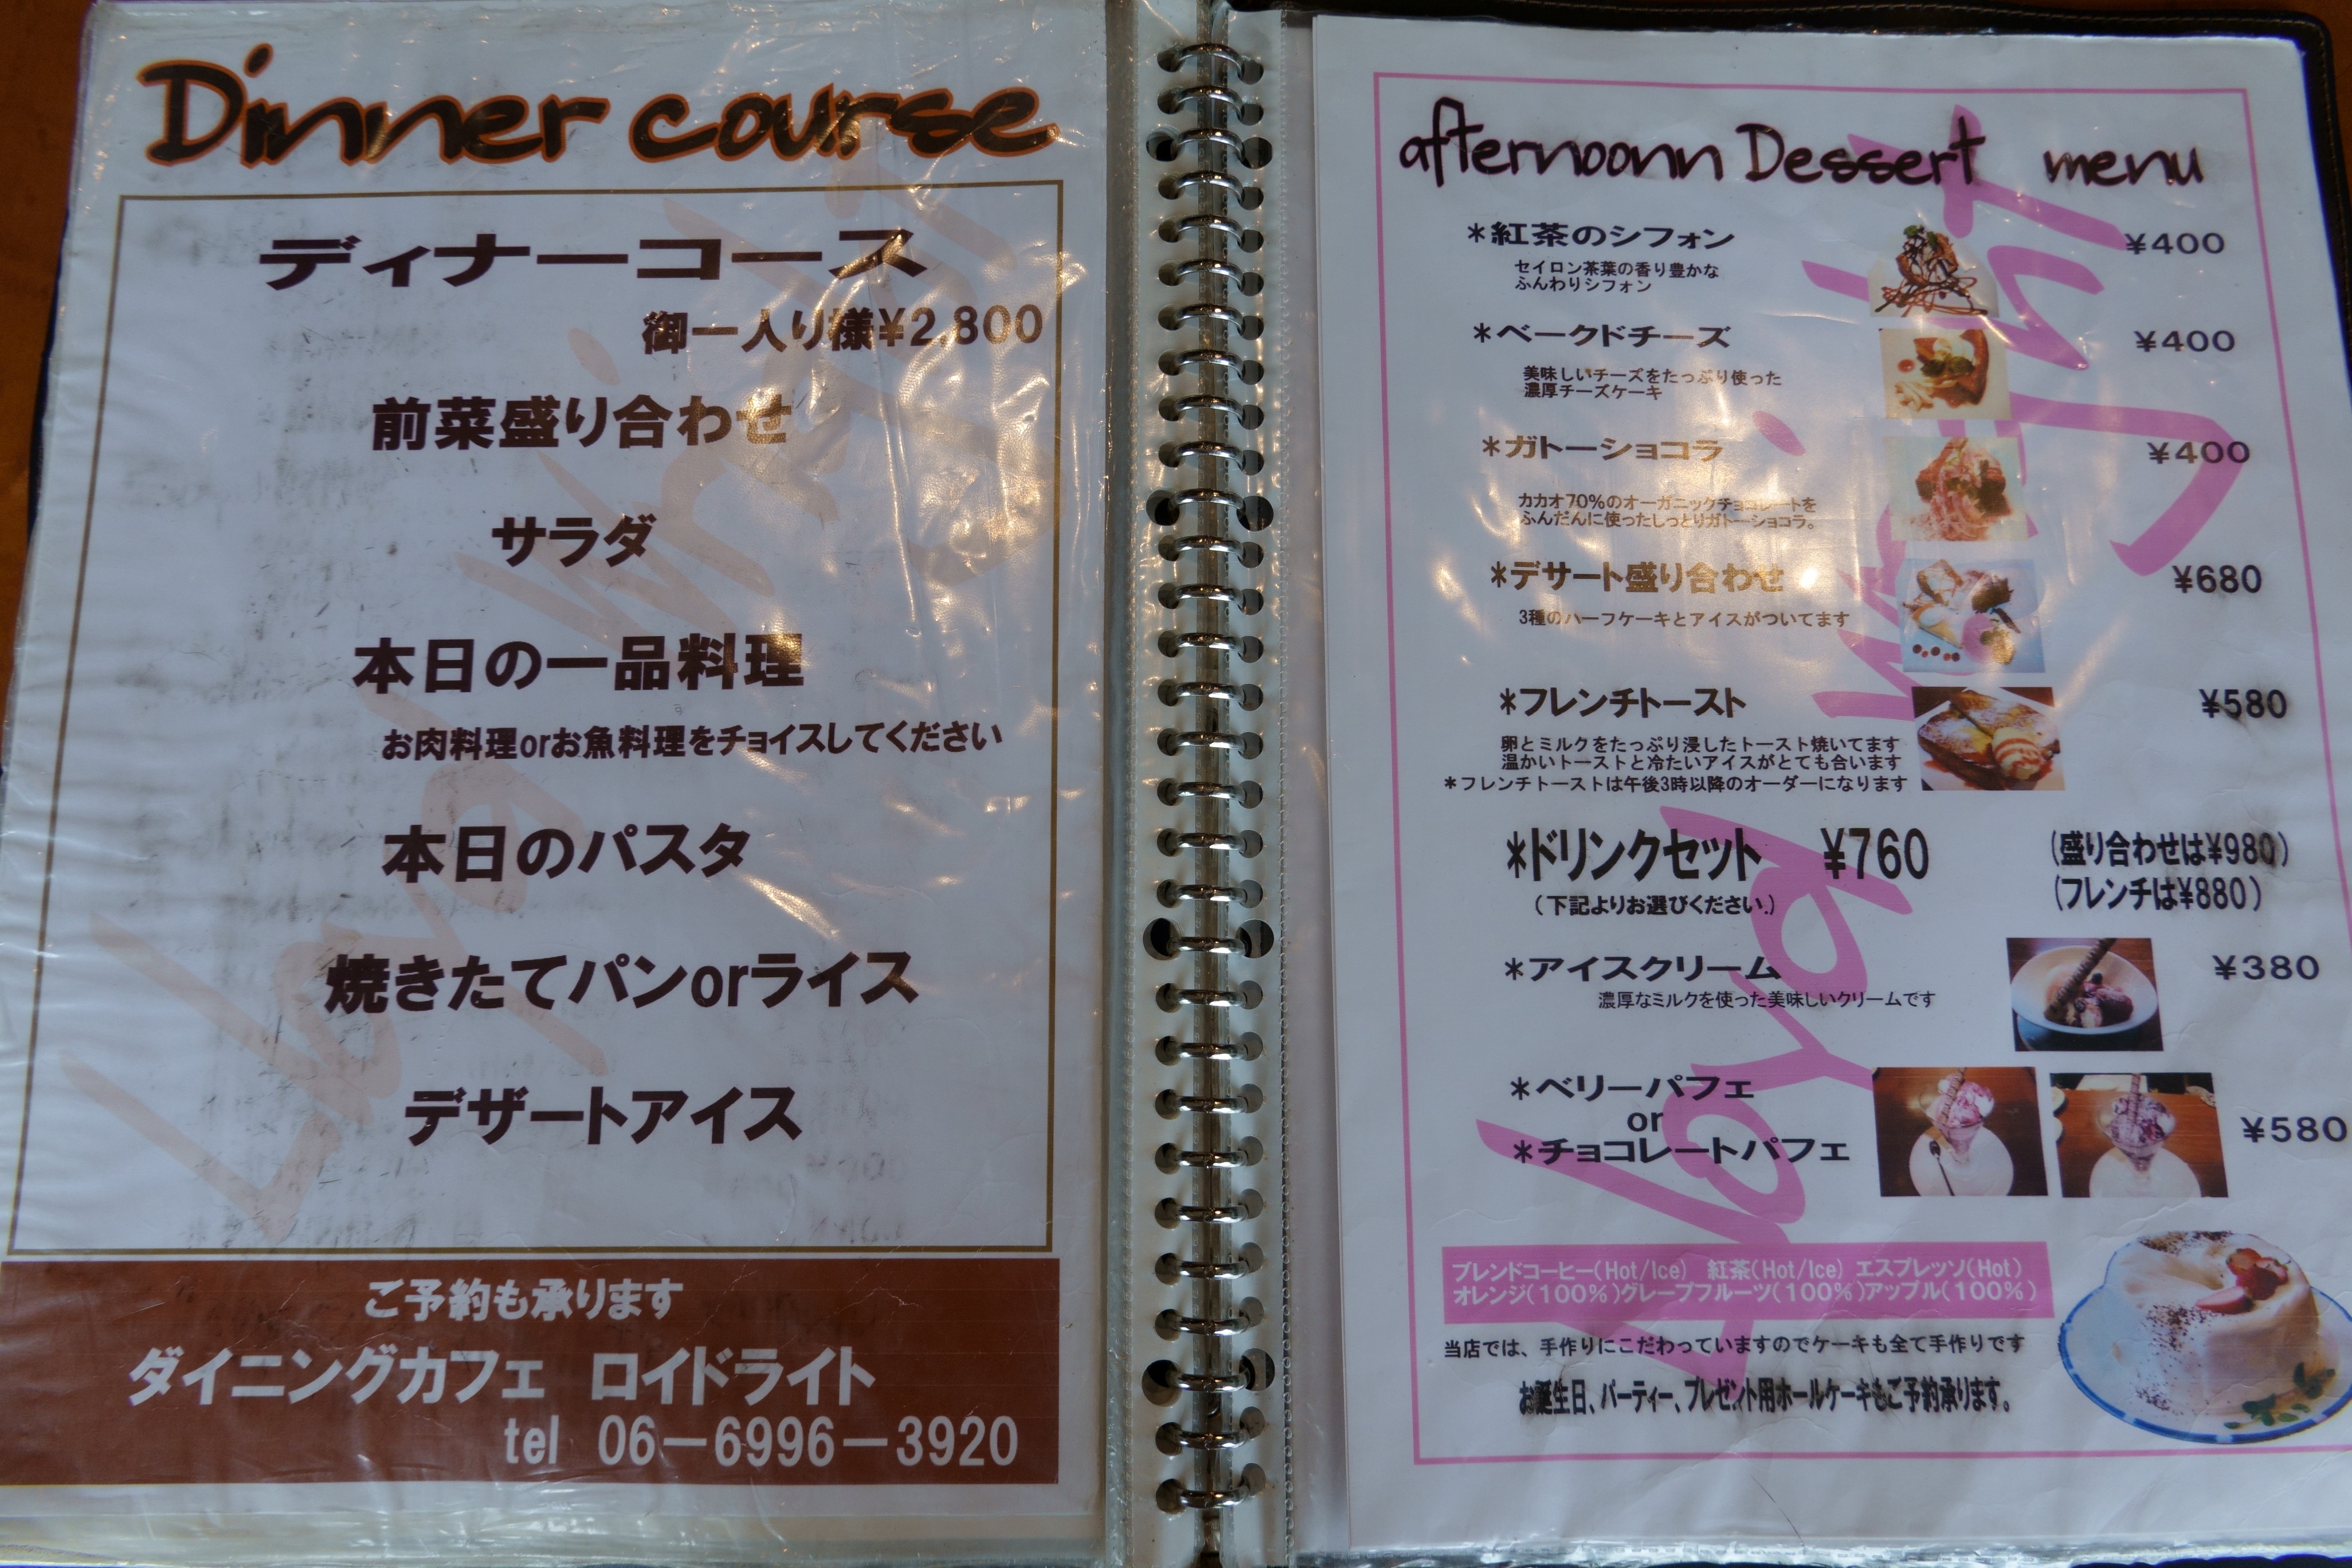 Dinner course
ディナーコース
御一人り様¥2,800
前菜盛り合わせ
サラダ
本日の一品料理
お肉料理orお魚料理をチョイスしてください
本日のパスタ
焼きたてパンorライス
デザートアイス
ご予約も承ります
ダイニングカフェ ロイドライト
tel 06-6996-3920
afternoonn Dessert menu
*紅茶のシフォン ¥400
セイロン茶葉の香り豊かな
ふんわりシフォン
*ベークドチーズ ¥400
美味しいチーズをたっぷり使った
濃厚チーズケーキ
*ガトーショコラ ¥400
カカオ70%のオーガニックチョコレートを
ふんだんに使ったしっとりガトーショコラ。
*デサート盛り合わせ ¥680
3種のハーフケーキとアイスがついてます
*フレンチトースト ¥580
卵とミルクをたっぷり浸したトースト焼いてます
温かいトーストと冷たいアイスがとても合います
*フレンチトーストは午後3時以降のオーダーになります
*ドリンクセット ¥760 (盛り合わせは¥980)
(下記よりお選びください.) (フレンチは¥880)
*アイスクリーム ¥380
濃厚なミルクを使った美味しいクリームです
*ベリーパフェ
or
*チョコレートパフェ ¥580
ブレンドコーヒー(Hot/Ice) 紅茶(Hot/Ice) エスプレッソ(Hot)
オレンジ(100%)グレープフルーツ(100%)アップル(100%)
当店では、手作りにこだわっていますのでケーキも全て手作りです
お誕生日、パーティー、プレゼント用ホールケーキもご予約承ります。